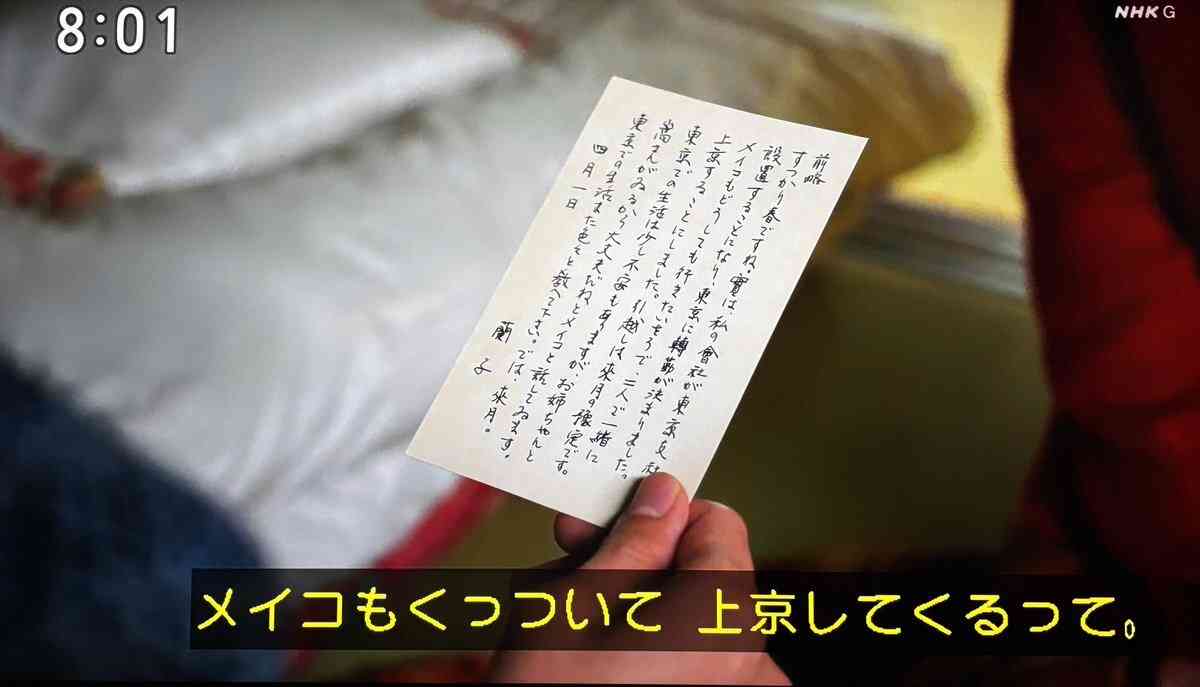 8:01
NHK G
前略
すつかり春ですね。實は、私の會社が東京支社
設置することになり、東京に轉勤が決まりました。
メイコもどうしても行きたいさうで、二人で一緒に
上京することにしました。引越しは來月の豫定です。
東京での生活は少し不安もありますが、お姉ちやんと
嵩さんがゐるから大丈夫だね、とメイコと話してゐます。
東京での生活また色々と教へて下さい。では、來月。
四月一日
蘭子
メイコもくっついて 上京してくるって。